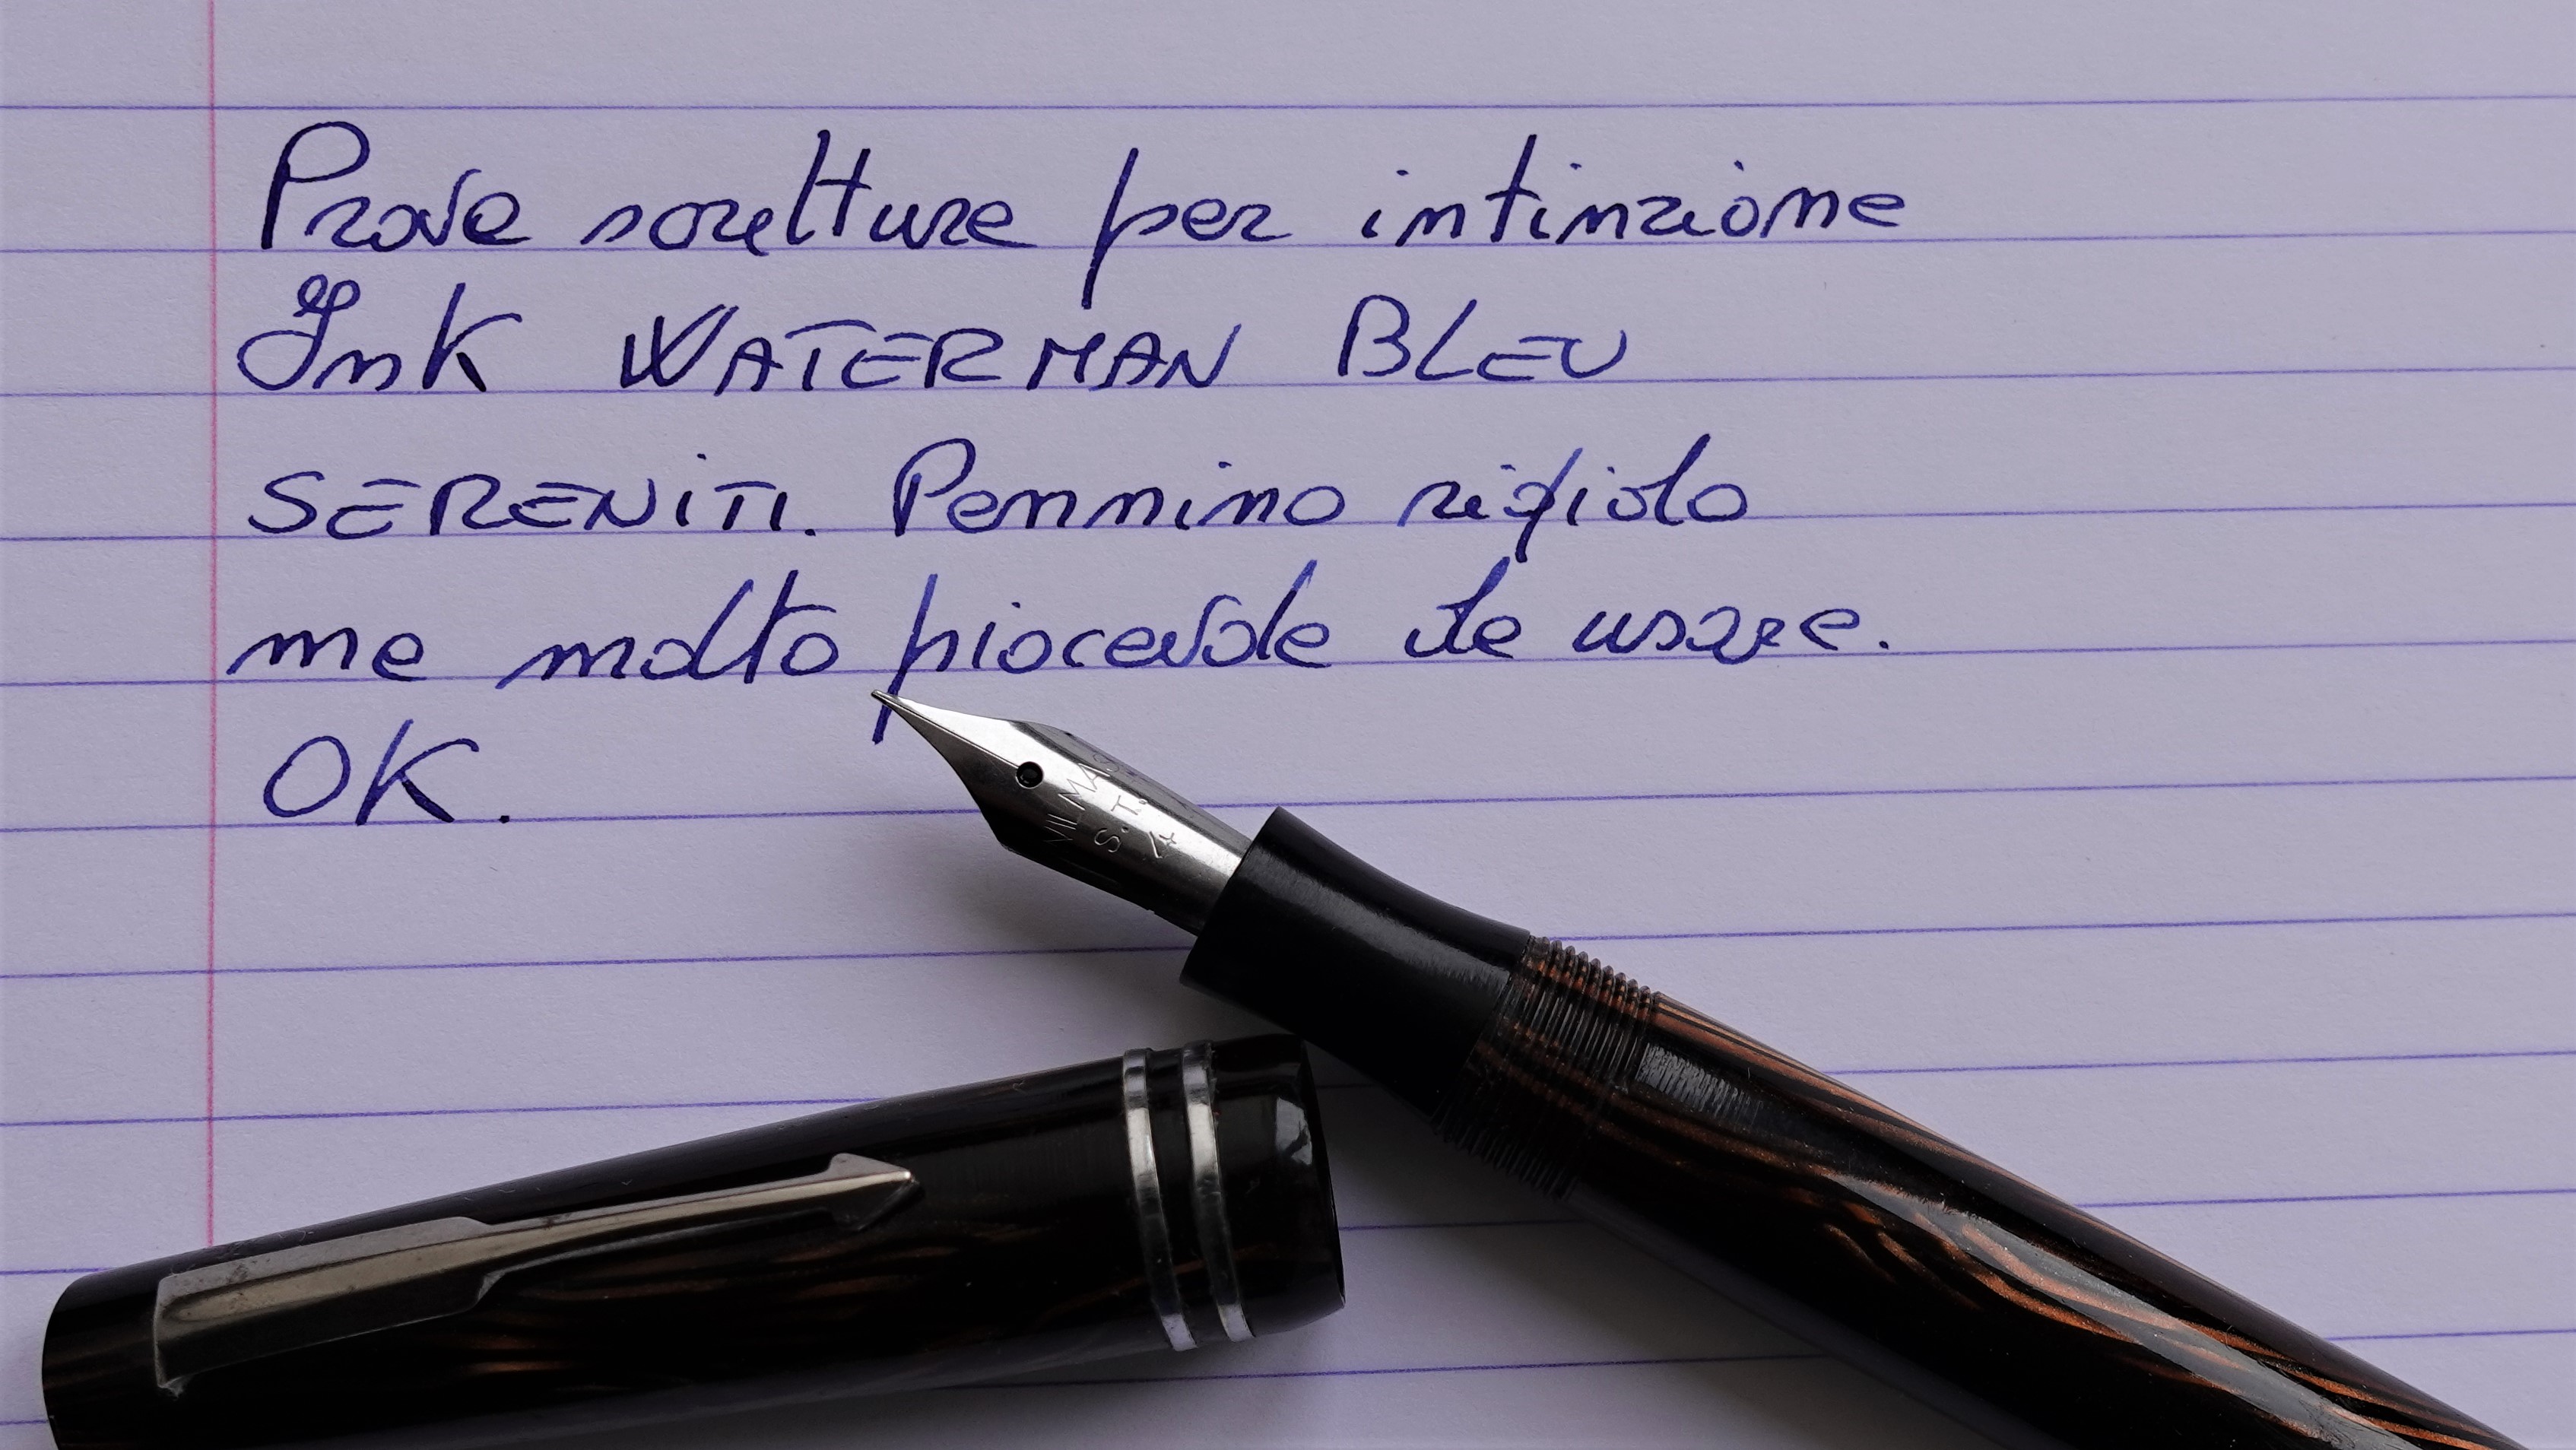 Prova scrittura per intinzione
Ink WATERMAN BLEU
SERENITI. Pennino rigido
ma molto piacevole da usare.
OK.
VILMAS
S.T.
4